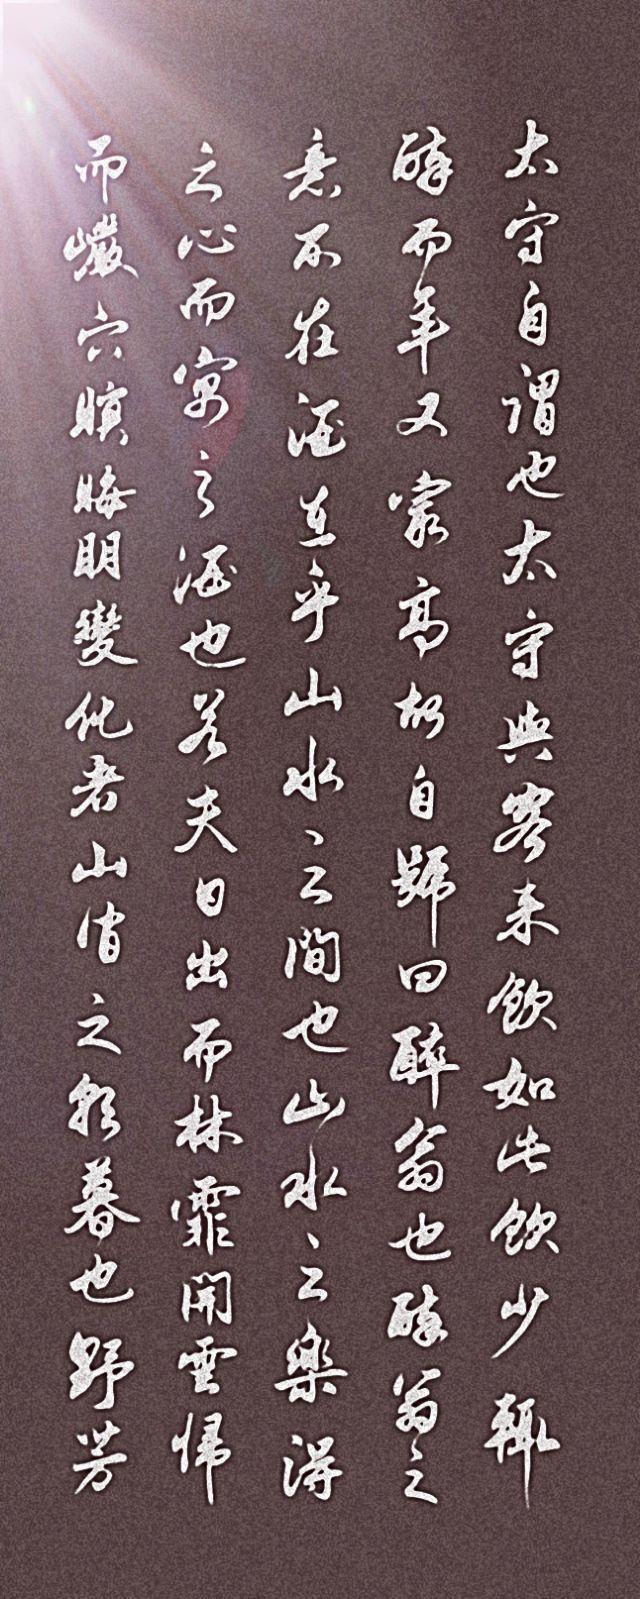 太守自謂也太守與客来飲如此飲少輒
醉而年又最高故自號曰醉翁也醉翁之
意不在酒在乎山水之間也山水之樂得
之心而寓之酒也若夫日出而林霏開雲歸
而巖穴暝晦明變化者山間之朝暮也野芳